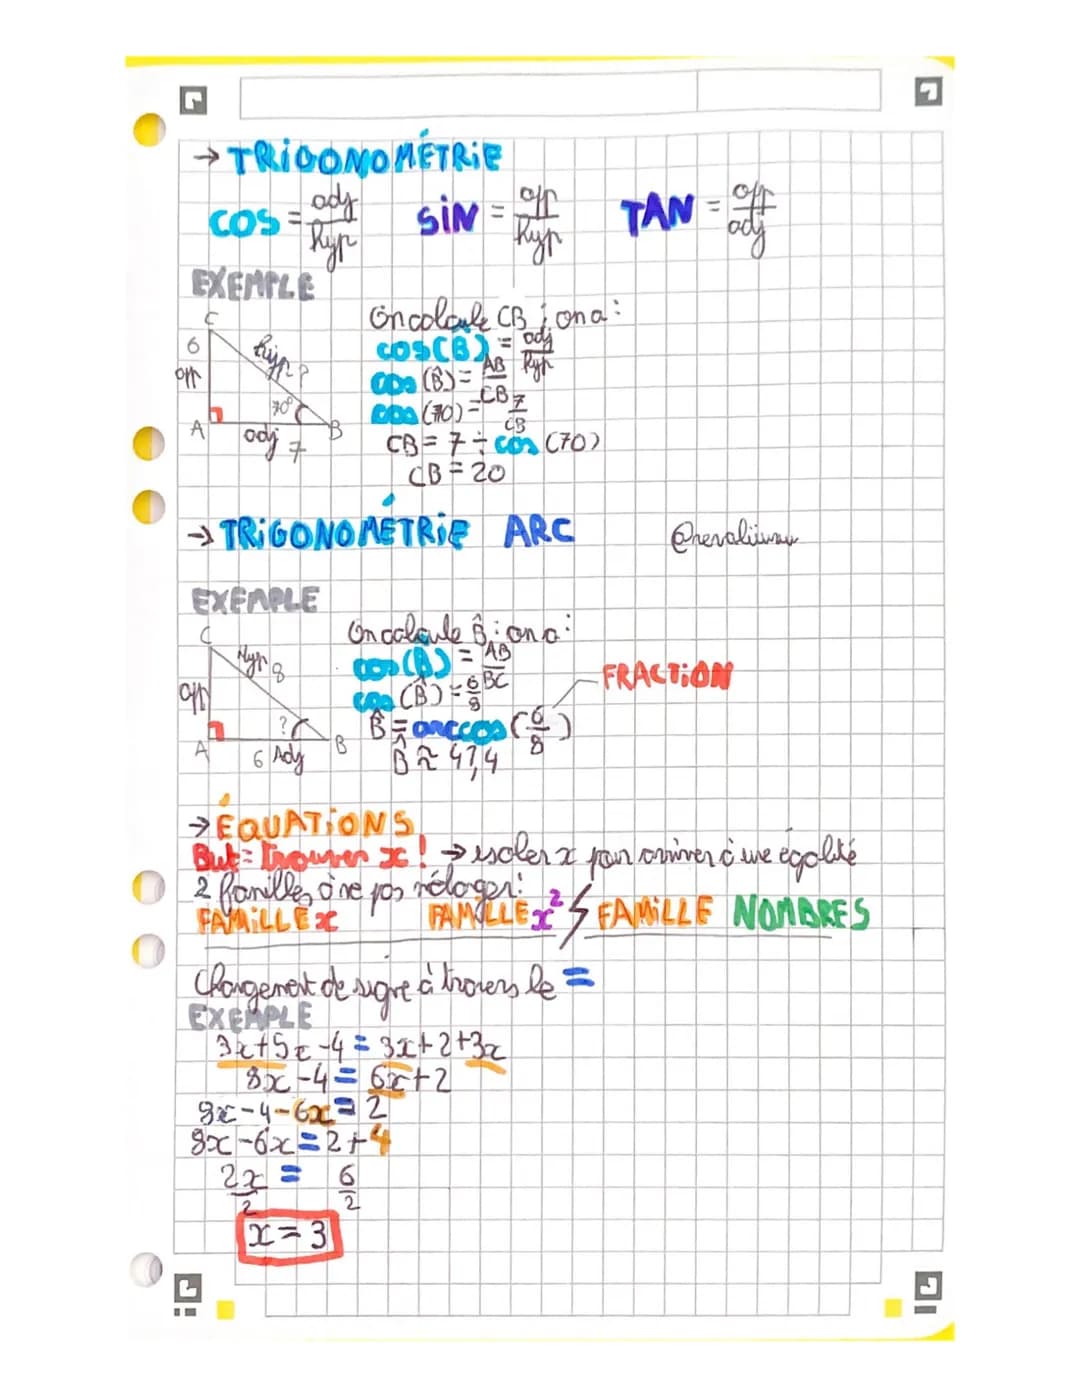 → TRIGONOMÉTRIE
COS = adj/hyp SIN = opp/hyp TAN = opp/adj
EXEMPLE
C
6
opp
hyp ?
70°
A
adj 7
B
On calcule CB ; on a :
cos(B̂) = adj/hyp
cos (B̂) = AB/CB
cos (70) = 7/CB
CB = 7 ÷ cos (70)
CB = 20
→ TRIGONOMÉTRIE ARC
EXEMPLE
C
Hyp 8
opp
?
A
6 Adj
B
On calcule B̂ : on a :
cos(B̂) = AB/BC
cos (B̂) = 6/8
FRACTION
B̂ = arccos (6/8)
B̂ ≈ 41,4
→ ÉQUATIONS
But = trouver x ! → isoler x pour arriver à une égalité
2 familles à ne pas mélanger :
FAMILLE x FAMILLE x² FAMILLE NOMBRES
Changement de signe à travers le =
EXEMPLE
3x+5x-4 = 3x+2+3x
8x-4 = 6x+2
8x-4-6x = 2
8x-6x = 2+4
2x/2 = 6/2
x = 3